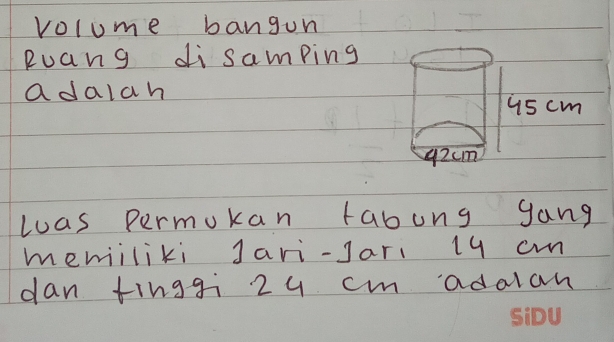 Volume bangun
Ruang disamping
adalah
45 cm
42cm
luas Permukan tabung yang
memiliki Jari-Jari 14 cm
dan tinggi 24 cm adalah
SiDU